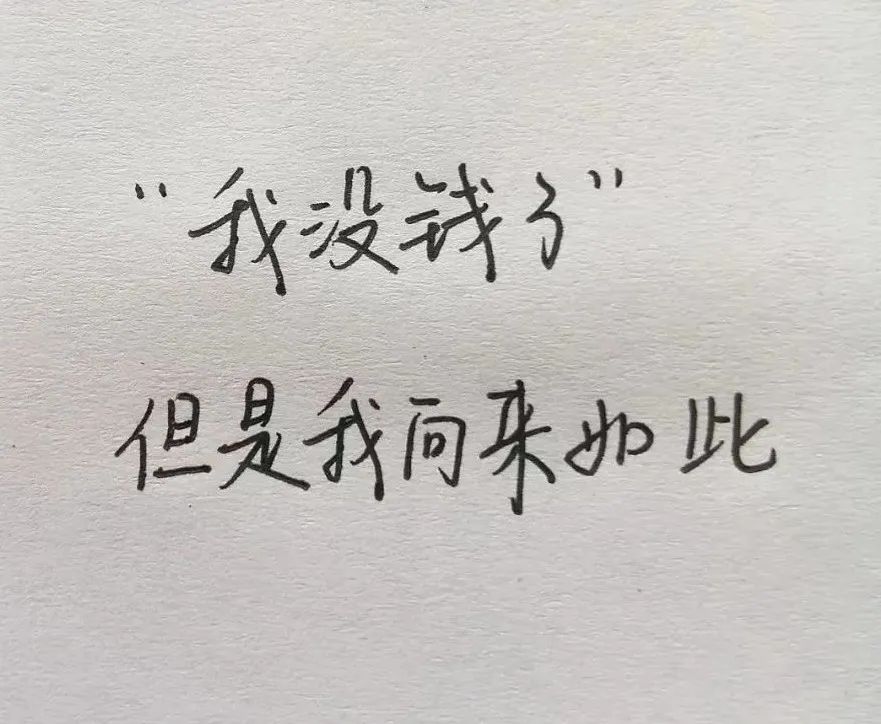 “我没钱了”
但是我向来如此